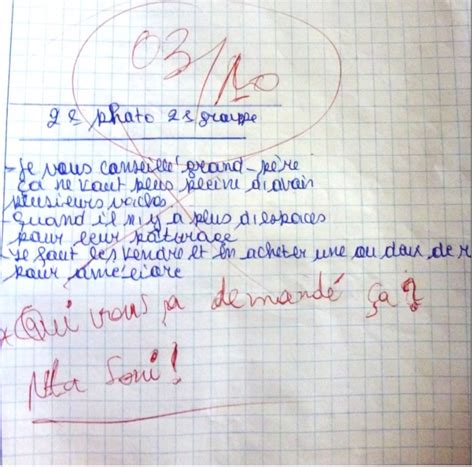 03/10
2e photo 2e groupe
- Je vous conseille grand-père
ça ne vaut plus pleine d'avoir
plusieurs vaches
- Quand il n'y a plus d'espaces
pour leur pâturage
- Il faut les vendre et en acheter une ou deux de r
pour
Qui vous a demandé ça?